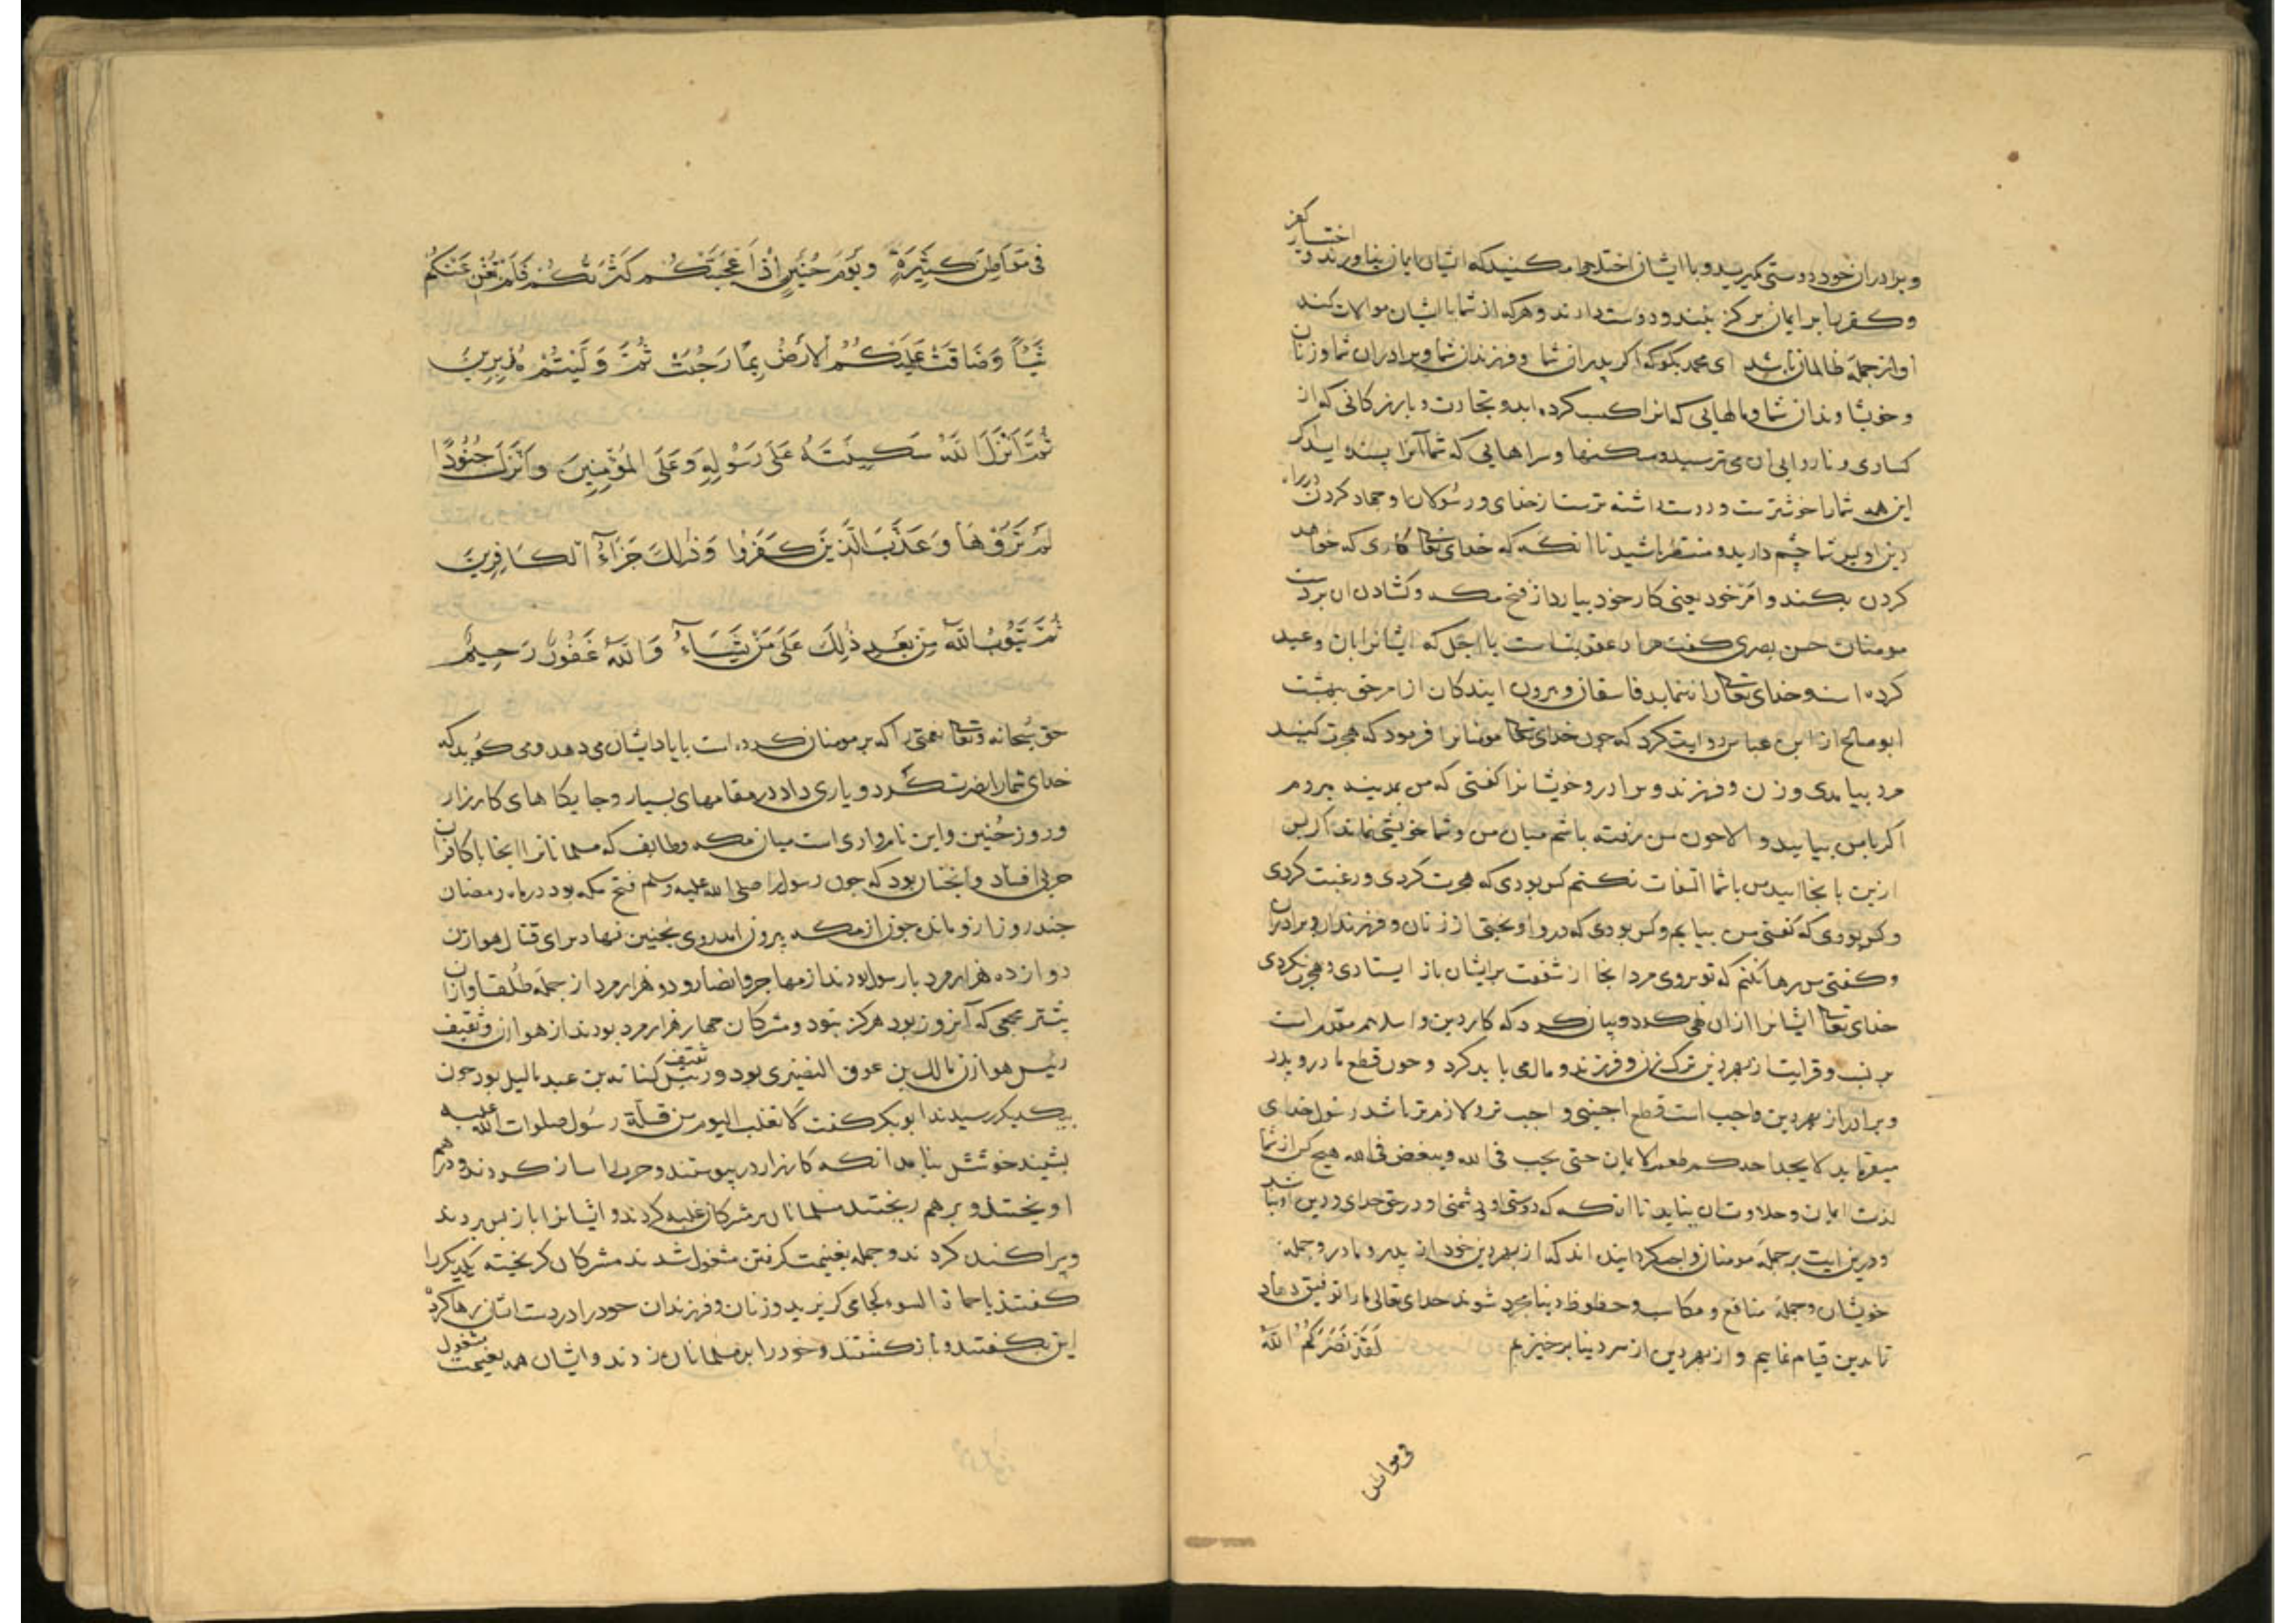 و برادران خود دوستی مگیرید و با ایشان اختلاط مکنید که ایشان ایمان نیاوردند و اختیار کفر
و کفر را بر ایمان برگزینند و دوست دارند و هرکه از شما با ایشان موالات کند
او از جمله ظالمان باشد ای محمد بگو که اگر پدران شما و فرزندان شما و برادران شما و زنان
و خویشاوندان شما و مالهایی که انرا کسب کرده اید و تجارت و بازرکانی که از
کسادی و ناروایی ان می ترسید و مسکنها و سراهایی که شما آنرا پسندیده اید اگر
این همه شما را خوشترست و دوست داشته ترست از خدای و رسول او جهاد کردن در راه
دین او پس شما چشم دارید و منتظر باشید تا انکه که خدای تعالی کاری که خواهد
کردن بکند و امر خود یعنی کار خود بیارد از فتح مکه و کشادن ان بر دست
مومنان حسن بصری گفت مراد عقوبتست یا اجل که ایشانرا بان وعید
کرده است و خدای تعالی راه ننماید فاسقان و بیرون ایندکان از امر حق ببهشت
ابو صالح از ابن عباس روایت کرد که چون خدای تعالی مومنانرا فرمود که هجرت کنید
مرد بیامدی و زن و فرزند و برادر و خویشانرا گفتی که من بمدینه میروم
اگر با من بیایید و الا چون من رفته باشم میان من و شما خویشی نماند اگر پس
ازین با نجا ایید من با شما التفات نکنم کس بودی که هجرت کردی و رغبت کردی
و کس بودی که گفتی من بیایم و کس بودی که در او اویختی از زنان و فرزندان و برادران
و گفتی من رها نکنم که تو بروی مرد انجا از شفقت بر ایشان باز ایستادی و هجرت نکردی
خدای تعالی ایشانرا از ان نهی کرد و بیان کرد که کار دین و اسلام مقدم است
بر نسب و قرابت از بهر دین ترک زن و فرزند و مال می باید کرد و چون قطع مادر و پدر
و برادر از بهر دین واجب است قطع اجنبی واجب تر و لازم تر باشد رسول خدای
میفرماید لا یجد احدکم طعم الایمان حتی یحب فی الله و یبغض فی الله هیچ کس از شما
لذت ایمان و حلاوت ان نیابد تا انکه که دوستی او و دشمنی او در حق خدای و دین او باشد
و درین ایت بر جمله مومنان واجب گردانیده اند که از بهر دین خود از پدر و مادر و جمله
خویشان و جمله منافع و مکاسب و حظوظ دنیا مجرد شوند خدای تعالی ما را توفیق دهاد
تا بدین قیام نماییم و از بهر دین از سر دنیا برخیزیم لَقَدْ نَصَرَكُمُ اللّهُ
فی مواطن
فِی مَوَاطِنَ كَثِیرَةٍ وَیَوْمَ حُنَیْنٍ اِذْ اَعْجَبَتْكُمْ كَثْرَتُكُمْ فَلَمْ تُغْنِ عَنْكُمْ
شَیْئًا وَضَاقَتْ عَلَیْكُمُ الْاَرْضُ بِمَا رَحُبَتْ ثُمَّ وَلَّیْتُمْ مُدْبِرِینَ
ثُمَّ اَنْزَلَ اللّهُ سَكِینَتَهُ عَلَی رَسُولِهِ وَعَلَی الْمُؤْمِنِینَ وَاَنْزَلَ جُنُودًا
لَمْ تَرَوْهَا وَعَذَّبَ الَّذِینَ كَفَرُوا وَذٰلِكَ جَزَاءُ الْكَافِرِینَ
ثُمَّ یَتُوبُ اللّهُ مِنْ بَعْدِ ذٰلِكَ عَلَی مَنْ یَشَاءُ وَاللّهُ غَفُورٌ رَحِیمٌ
حق سبحانه و تعالی نعمتی را که بر مومنان کرده است با یاد ایشان می دهد و می گوید که
خدای شما را نصرت کرد و یاری داد در مقامهای بسیار و جایگاهای کارزار
و روز حُنین و این نام وادی است میان مکه و طایف که مسلمانانرا انجا با کافران
حربی افتاد و انچنان بود که چون رسول را صلی الله علیه وسلم فتح مکه بود در ماه رمضان
چند روز ازو مانده چون از مکه بیرون امد روی بحنین نهاد برای قتال هوازن
دوازده هزار مرد با رسول بودند از مهاجر و انصار و دو هزار مرد از جمله طلقا و ازان
بیشتر جمعی که آنروز بود هرگز نبود و مشرکان چهار هزار مرد بودند از هوازن و ثقیف
رییس هوازن مالک بن عوف النضیری بود و رییس ثقیف کنانه بن عبد یالیل بود چون
بیکدیگر رسیدند ابوبکر گفت لا نغلب الیوم من قلّة رسول صلوات الله علیه
بشنید خوشش نیامد انکه کارزار در پیوستند و حرب را ساز کردند و درهم
اویختند و بر هم ریختند مسلمانان بر مشرکان غلبه کردند و ایشانرا باز پس بردند
و پراکنده کردند و جمله بغنیمت گرفتن مشغول شدند مشرکان گریخته یکدیگر را
گفتند یا حماة السوء کجا می گریزید و زنان و فرزندان خود را در دست اینان رها کرده
این بگفتند و باز گشتند و خود را بر مسلمانان زدند و ایشان همه بغنیمت مشغول